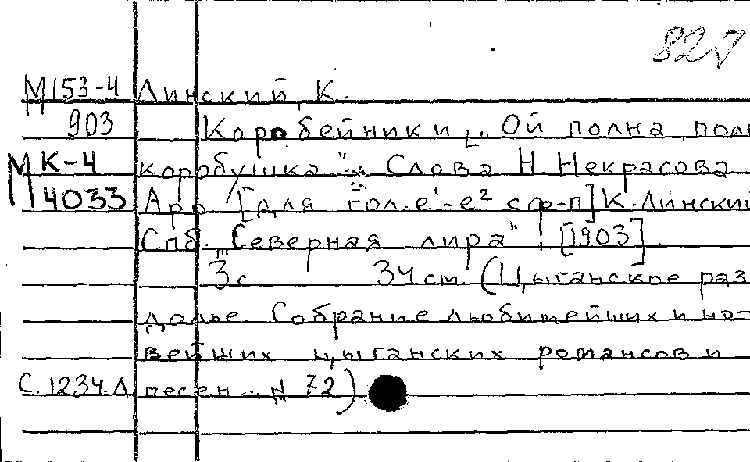 827
М153-4 Линский, К.
903 Коробейники „Ой полна пол
МК-4 коробушка". Слова Н. Некрасова
М4033 Арр. [для гол. e¹-e² с ф-п] К. Линский
Спб. „Северная лира" [1903]
3 с. 34 см. (Цыганское раз-
долье. Собрание любимейших и но-
вейших цыганских романсов и
С.1234.Д песен. № 72)